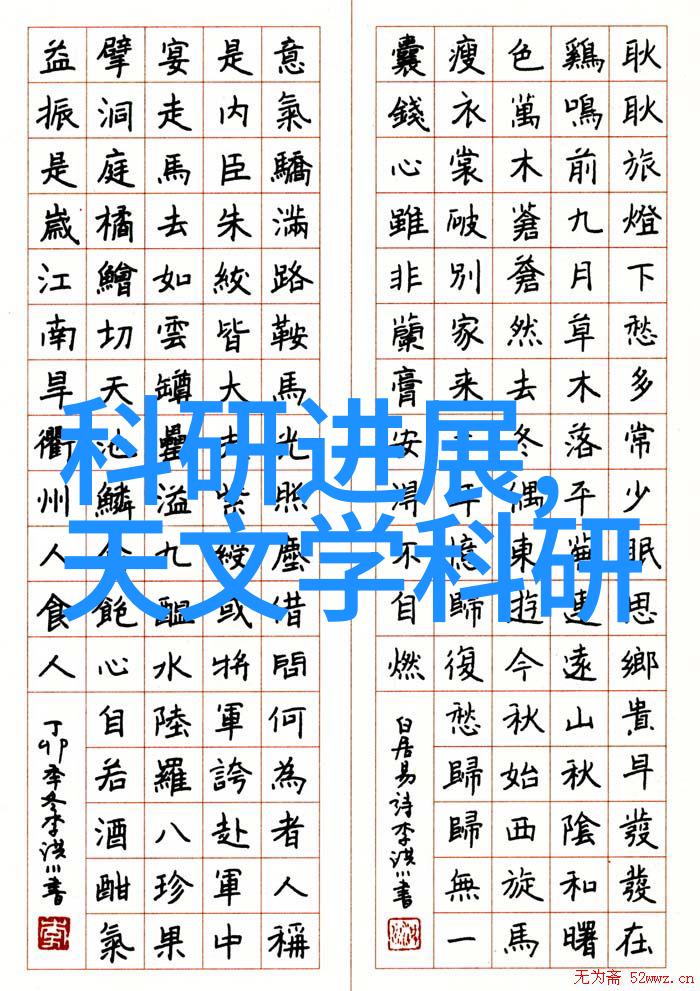 科研进展,
天文学科研
耿耿旅燈下愁多常少眠思鄉貴早發發在
鷄鳴前九月草木落平蕪連遠山秋陰和曙
色萬木蒼蒼然去冬偶東遊今秋始西旋馬
瘦衣裳破別家來年憶歸復愁歸歸無一
囊錢心雖非蘭膏安得不自燃
白居易诗李洪川書
意氣驕滿路鞍馬光照塵借問何為者人稱
是內臣朱紱皆大夫紫綬或將軍誇赴軍中
宴走馬去如雲罇罍溢九醖水陸羅八珍果
擘洞庭橘鱠切天池鱗食飽心自若酒酣氣
益振是歲江南旱衢州人食人
丁卯季冬李洪川書
无为斋 52wwz.cn